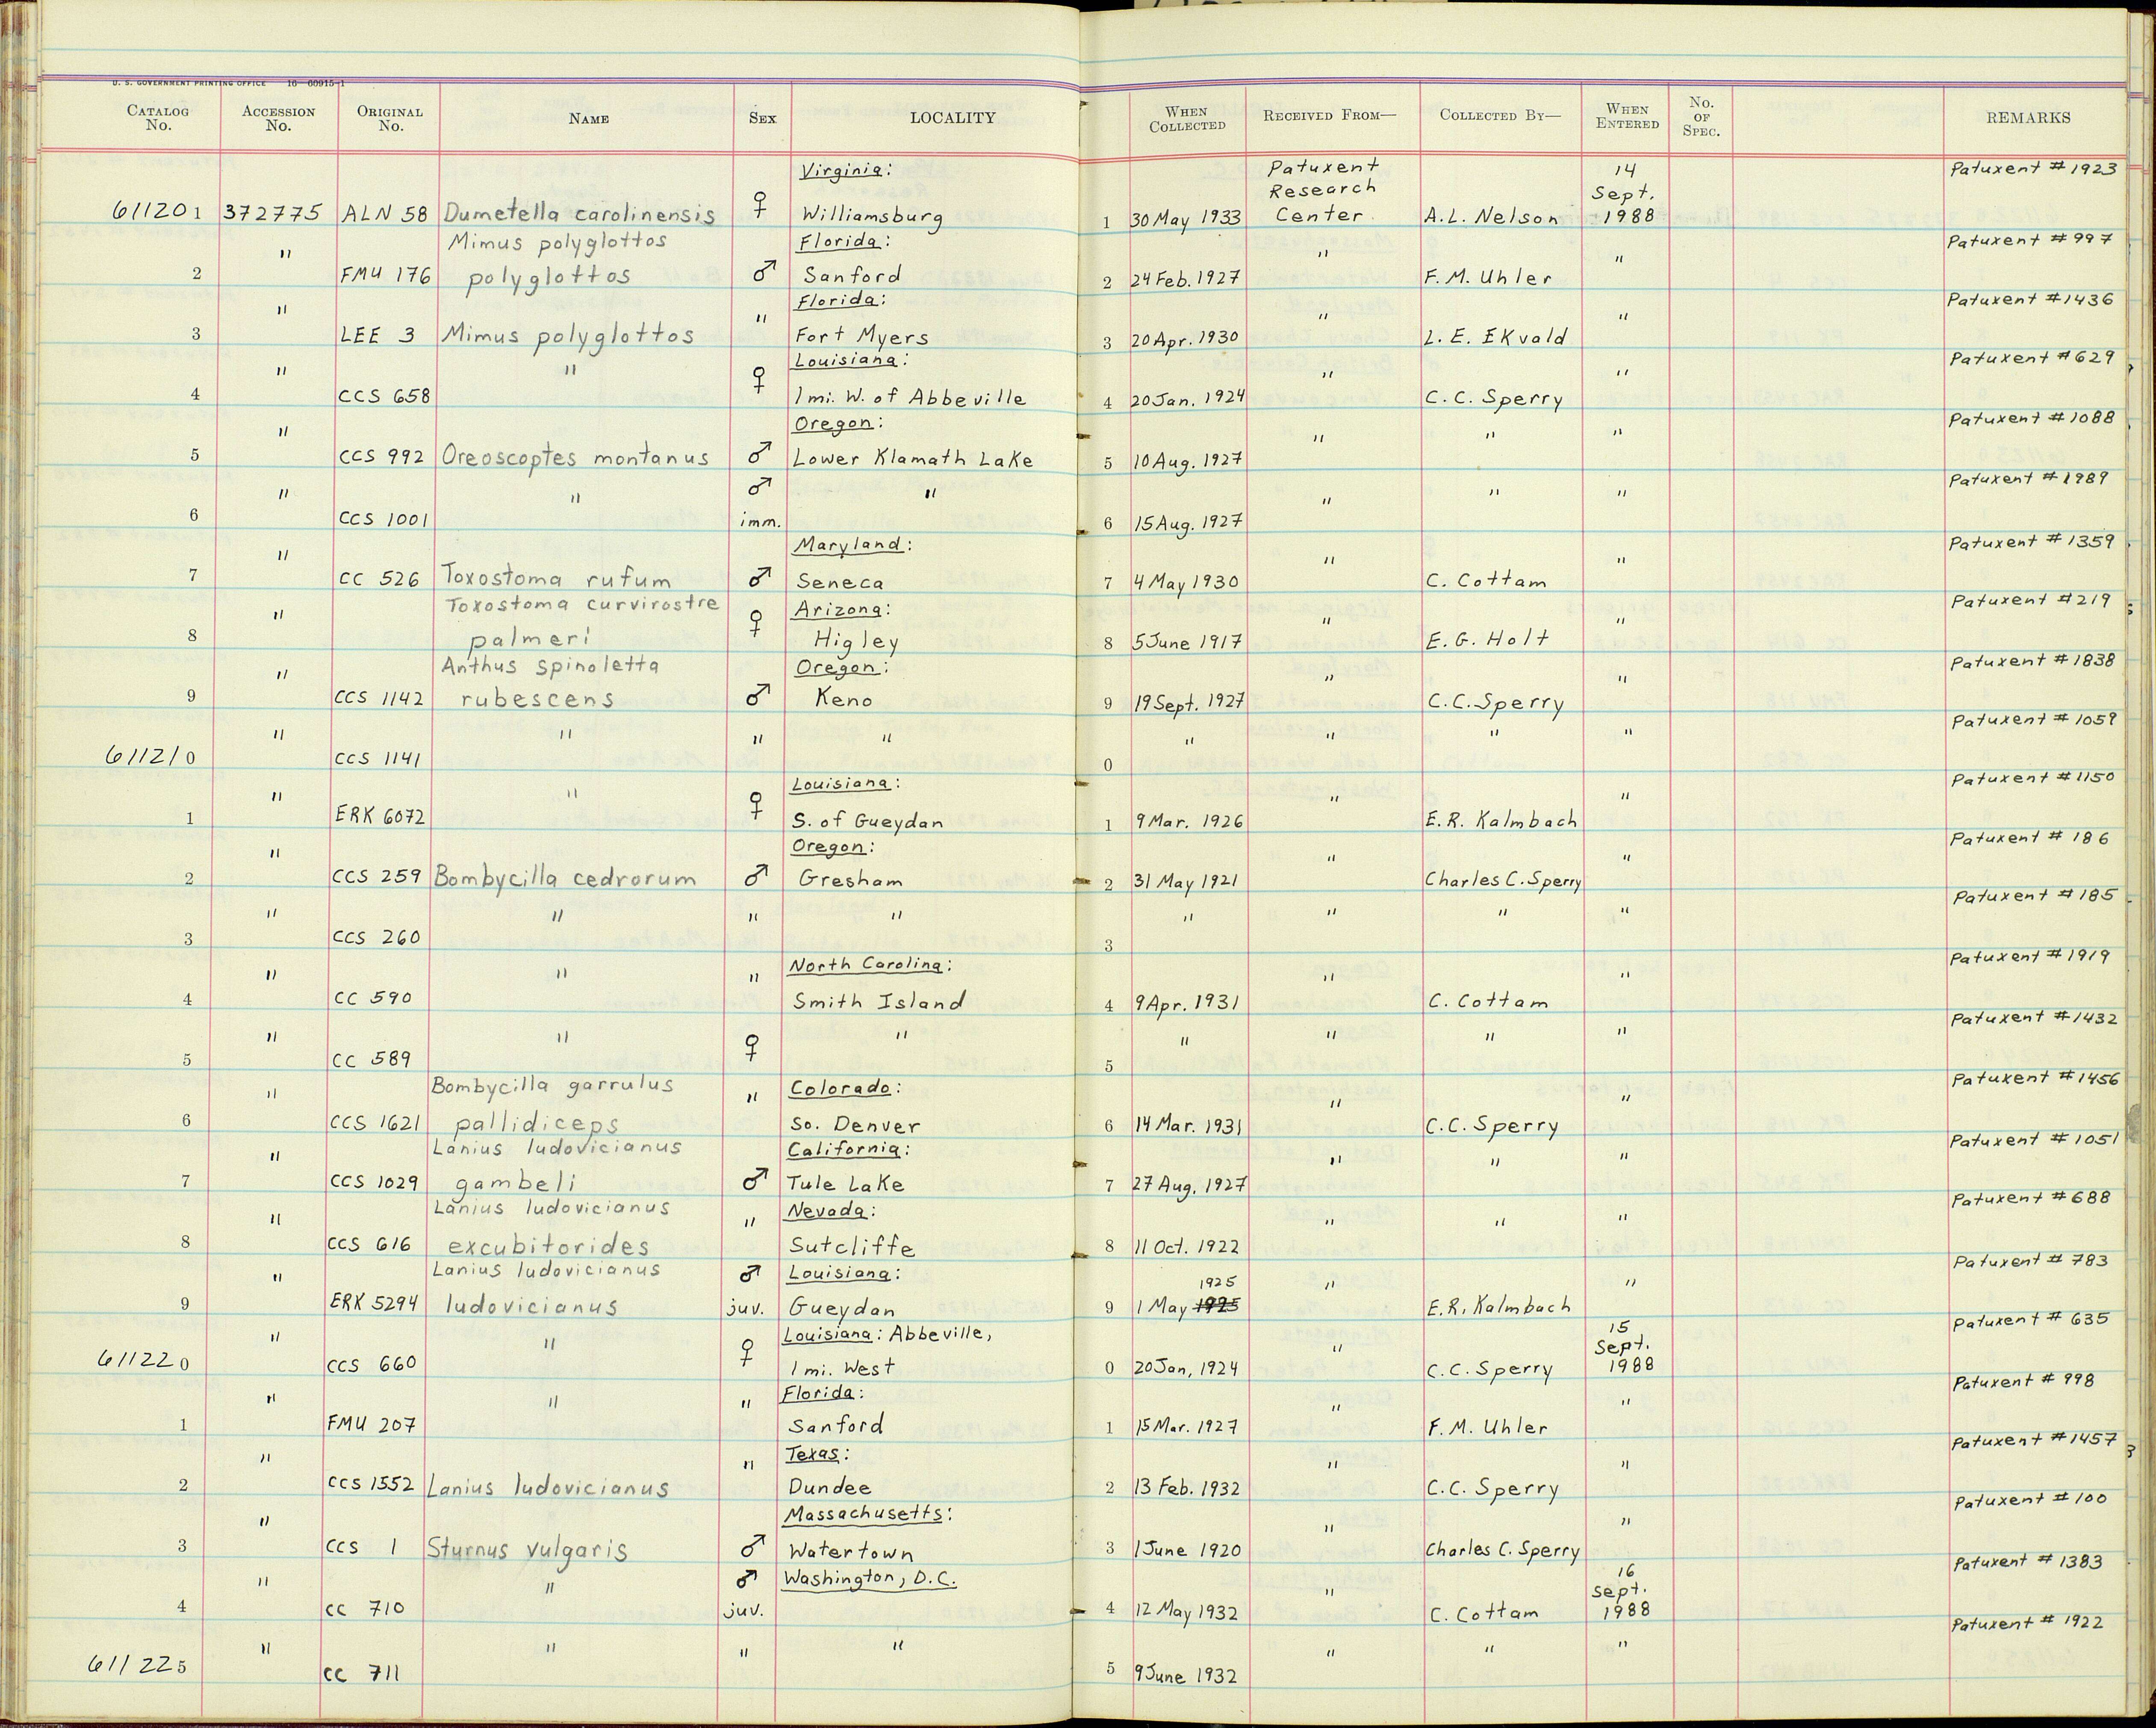 U. S. GOVERNMENT PRINTING OFFICE 16—60915-1
CATALOG No. ACCESSION No. ORIGINAL No. NAME SEX LOCALITY WHEN COLLECTED RECEIVED FROM— COLLECTED BY— WHEN ENTERED No. OF SPEC. REMARKS
Virginia: Patuxent 14 Patuxent #1923
Research Sept.
611201 372775 ALN 58 Dumetella carolinensis ♀ Williamsburg 1 30 May 1933 Center A.L. Nelson 1988
" Mimus polyglottos Florida: " " Patuxent #997
2 FMU 176 polyglottos ♂ Sanford 2 24 Feb. 1927 F.M. Uhler
" " Florida: " " Patuxent #1436
3 LEE 3 Mimus polyglottos Fort Myers 3 20 Apr. 1930 L. E. EKvald
" " ♀ Louisiana: " " Patuxent #629
4 CCS 658 1 mi. W. of Abbeville 4 20 Jan. 1924 C.C. Sperry
" Oregon: " " " Patuxent #1088
5 CCS 992 Oreoscoptes montanus ♂ Lower Klamath Lake 5 10 Aug. 1927
" " ♂ " " " " Patuxent #1989
6 CCS 1001 imm. 6 15 Aug. 1927
" Maryland: " " Patuxent #1359
7 CC 526 Toxostoma rufum ♂ Seneca 7 4 May 1930 C. Cottam
" Toxostoma curvirostre ♀ Arizona: " " Patuxent #219
8 palmeri Higley 8 5 June 1917 E. G. Holt
" Anthus spinoletta Oregon: " " Patuxent #1838
9 CCS 1142 rubescens ♂ Keno 9 19 Sept. 1927 C.C. Sperry
" " " " " " " " Patuxent #1059
611210 CCS 1141 0
" " ♀ Louisiana: " " Patuxent #1150
1 ERK 6072 S. of Gueydan 1 9 Mar. 1926 E.R. Kalmbach
" Oregon: " " Patuxent #186
2 CCS 259 Bombycilla cedrorum ♂ Gresham 2 31 May 1921 Charles C. Sperry
" " " " " " " " Patuxent #185
3 CCS 260 3
" " " North Carolina: " " Patuxent #1919
4 CC 590 Smith Island 4 9 Apr. 1931 C. Cottam
" " ♀ " " " " " Patuxent #1432
5 CC 589 5
" Bombycilla garrulus " Colorado: " " Patuxent #1456
6 CCS 1621 pallidiceps So. Denver 6 14 Mar. 1931 C.C. Sperry
" Lanius ludovicianus California: " " " Patuxent #1051
7 CCS 1029 gambeli ♂ Tule Lake 7 27 Aug. 1927
" Lanius ludovicianus " Nevada: " " " Patuxent #688
8 CCS 616 excubitorides Sutcliffe 8 11 Oct. 1922
" Lanius ludovicianus ♂ Louisiana: 1925 " " Patuxent #783
9 ERK 5294 ludovicianus juv. Gueydan 9 1 May 1925 E.R. Kalmbach
" " ♀ Louisiana: Abbeville, " 15 Sept. Patuxent #635
611220 CCS 660 1 mi. West 0 20 Jan, 1924 C.C. Sperry 1988
" " " Florida: " " Patuxent #998
1 FMU 207 Sanford 1 15 Mar. 1927 F. M. Uhler
" " Texas: " " Patuxent #1457
2 CCS 1552 Lanius ludovicianus Dundee 2 13 Feb. 1932 C.C. Sperry
" Massachusetts: " " Patuxent #100
3 CCS 1 Sturnus vulgaris ♂ Watertown 3 1 June 1920 Charles C. Sperry
" " ♂ Washington, D.C. " 16 Sept. Patuxent #1383
4 CC 710 juv. 4 12 May 1932 C. Cottam 1988
" " " " " " " Patuxent #1922
611225 CC 711 5 9 June 1932